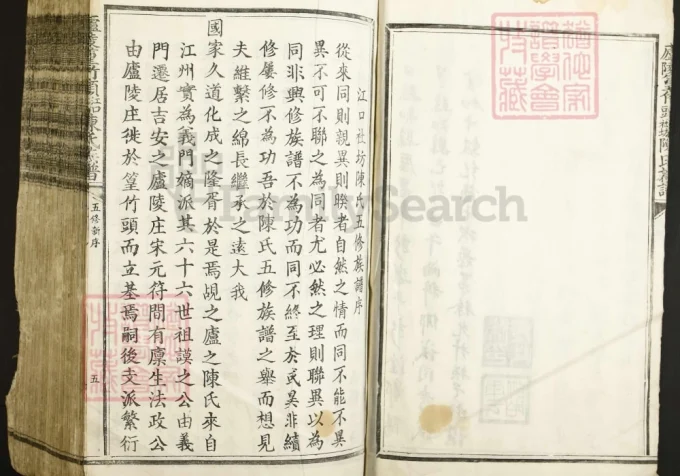 江口社坊陳氏五修族譜序
從來同則親異則睽者自然之情而同不能不異
異不可不聯之為同者尤必然之理則聯異以為
同非興修族譜不為功而同不終至於或異非續
修屢修不為功吾於陳氏五修族譜之舉而想見
夫維繫之綿長繼承之遠大我
國家久道化成之隆胥於是焉覘之廬之陳氏來自
江州實為義門嫡派其六十六世祖謨之公由義
門遷居吉安之廬陵庄宋元符間有廪生法政公
由廬陵庄徙於篁竹頭而立基焉嗣後支派繁衍
五修新序
五
FamilySearch